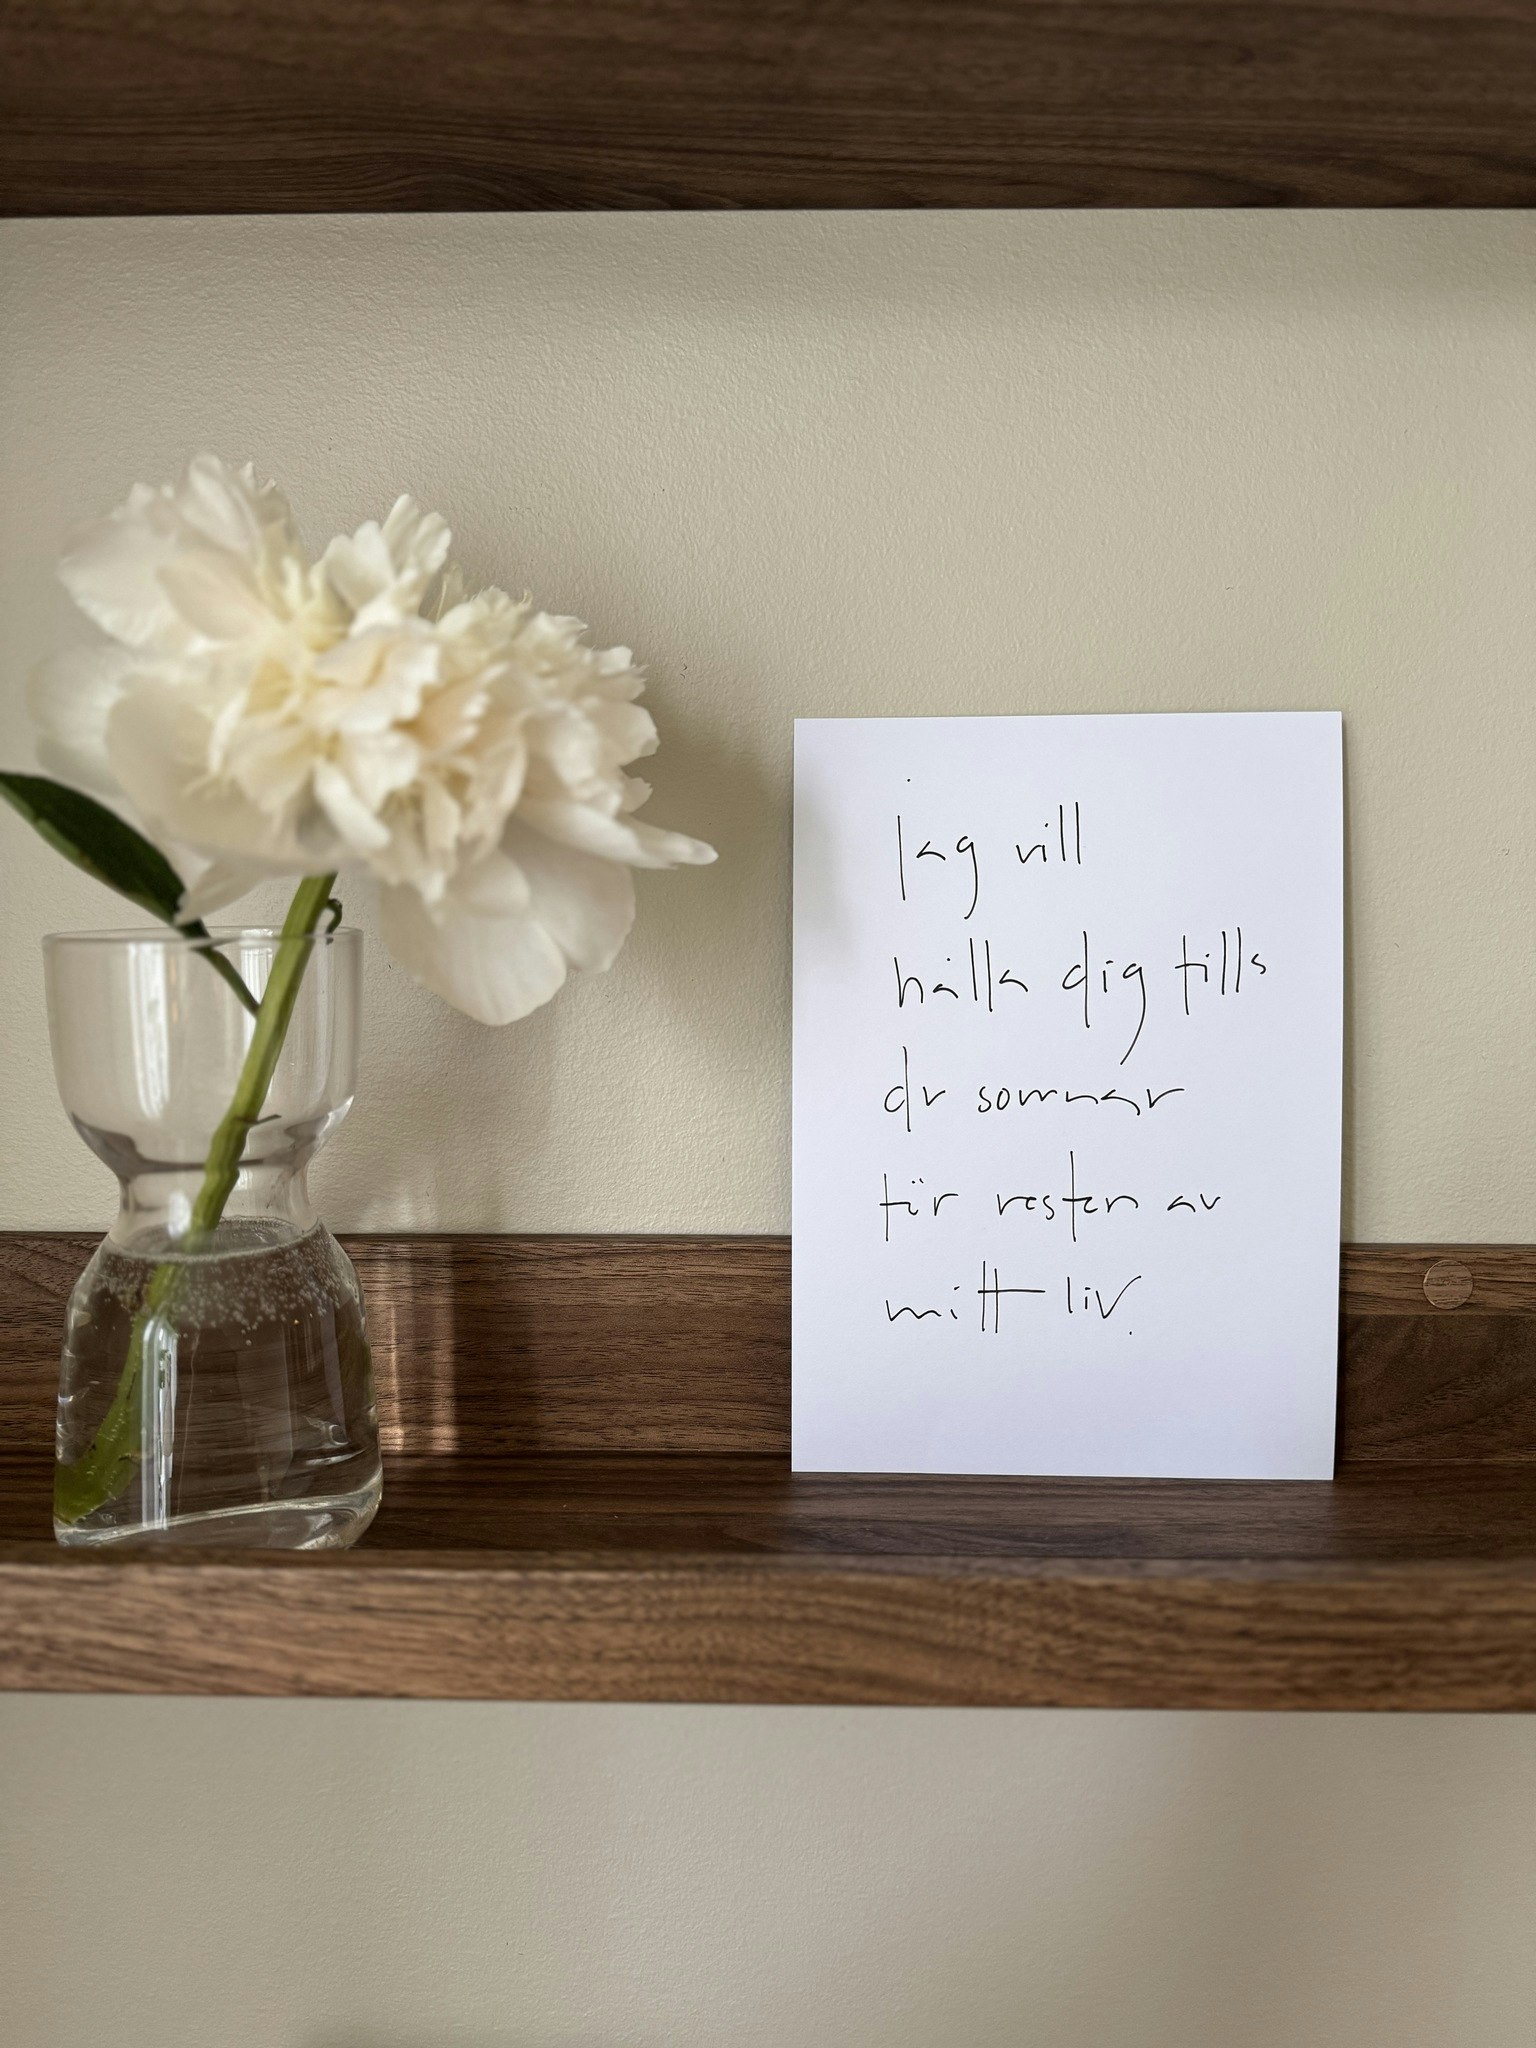 jag vill
hålla dig tills
du somnar
för resten av
mitt liv.